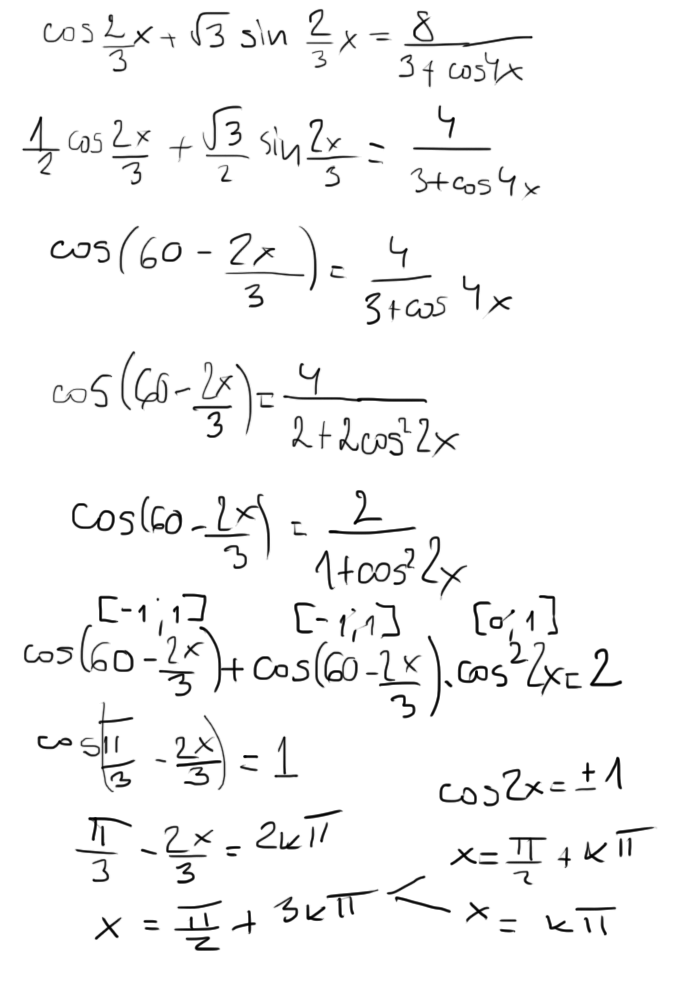 cos 2/3 x + √3 sin 2/3 x = 8/(3 + cos4x)
1/2 cos 2x/3 + √3/2 sin 2x/3 = 4/(3+cos4x)
cos(60 - 2x/3) = 4/(3+cos 4x)
cos(60 - 2x/3) = 4/(2+2cos²2x)
cos(60 - 2x/3) = 2/(1+cos²2x)
[-1;1] [-1;1] [0;1]
cos(60 - 2x/3) + cos(60 - 2x/3).cos²2x = 2
cos(π/3 - 2x/3) = 1
cos2x = ±1
π/3 - 2x/3 = 2kπ
x = π/2 + kπ
x = π/2 + 3kπ <
x = kπ